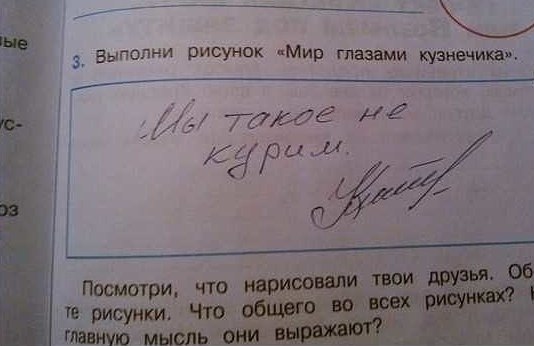 ные
3. Выполни рисунок «Мир глазами кузнечика».
ус-
Мы такое не
курим.
оз
Посмотри, что нарисовали твои друзья. Об
те рисунки. Что общего во всех рисунках?
главную мысль они выражают?